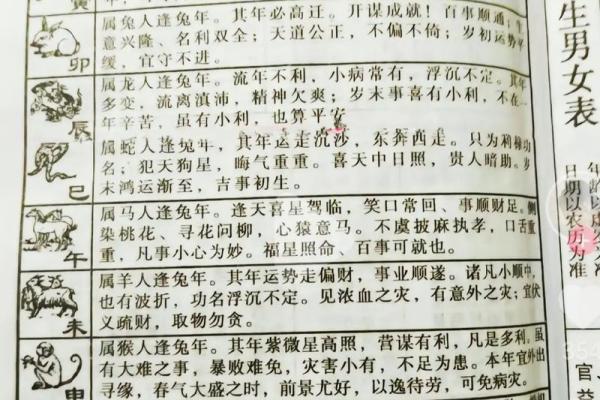 寅
属兔人逢兔年。其年必高迁。开谋成就!百事顺通;生
意兴隆、名利双全;天道公正,不偏不倚;岁初运势平
缓,宜守不进。
卯
属龙人逢兔年。流年不利,小病常有,浮沉不定。其年
多变,流离滇沛,精神欠爽;岁末事喜有小利,不在一
年辛苦,虽有小利,也算平安
辰
属蛇人逢兔年,其年运走沉沙,东奔西走。只为利禄功
名;犯天狗星,晦气重重。喜天中日照,贵人暗助。岁
末鸿运渐至,吉事初生。
巳
属马人逢兔年。逢天喜星驾临,笑口常回、事顺财足。侧
染桃花、寻花问柳,心猿意马。不虞披麻执孝,口舌重
重,凡事小心为妙。福星照命、百事可就也。
午
属羊人逢兔年。其年运势走偏财,事业顺遂。诸凡小顺中,
也有波折,功名浮沉不定。见浓血之灾,有意外之灾;宜伏
义疏财,取物勿贪。
未
属猴人逢兔年。其年紫微星高照,营谋有利,凡是多利。虽
有大难之事,暴败难免,灾害小有,不足为患。本年官外出
寻缘,春气大盛之时,前景尤好,以逸待劳,可免病灾。
申
生男女表
年龄以虚岁为准
日期以农历为准
354
官、
益